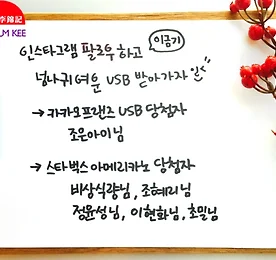 李錦記
UM KEE
인스타그램 팔로우 하고
이금기
냥나귀여운 USB 받아가자
→ 카카오프랜즈 USB 당첨자
조은아이님
→ 스타벅스 아메리카노 당첨자
비상식량님, 조혜리님
정윤성님, 이현화님, 초밀님